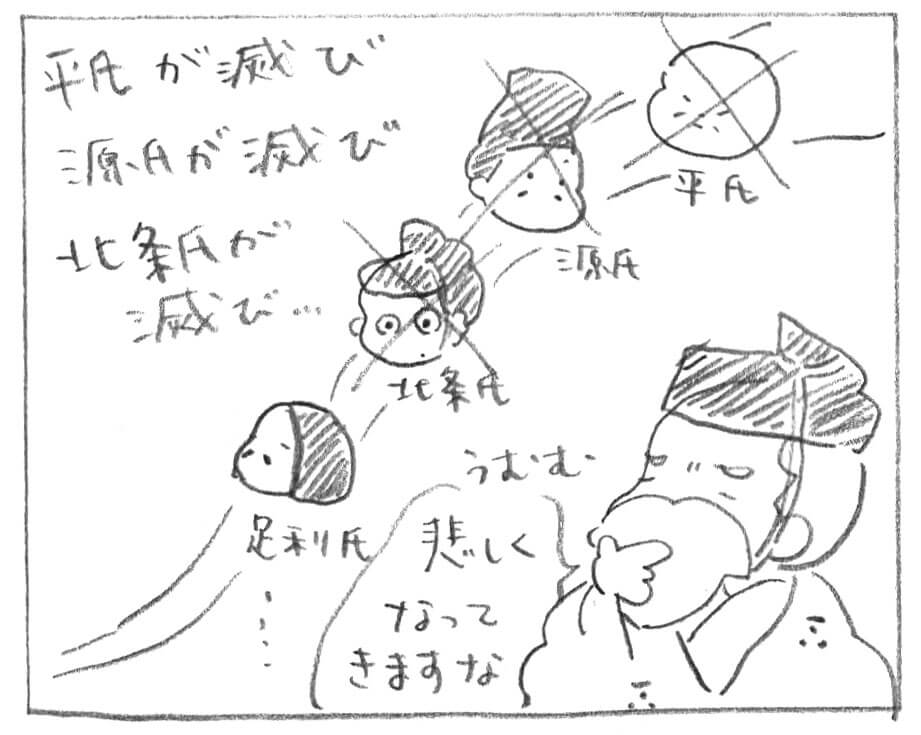 平氏が滅び
源氏が滅び
北条氏が
滅び…
平氏
源氏
北条氏
足利氏
……
うむむ
悲しく
なって
きますな